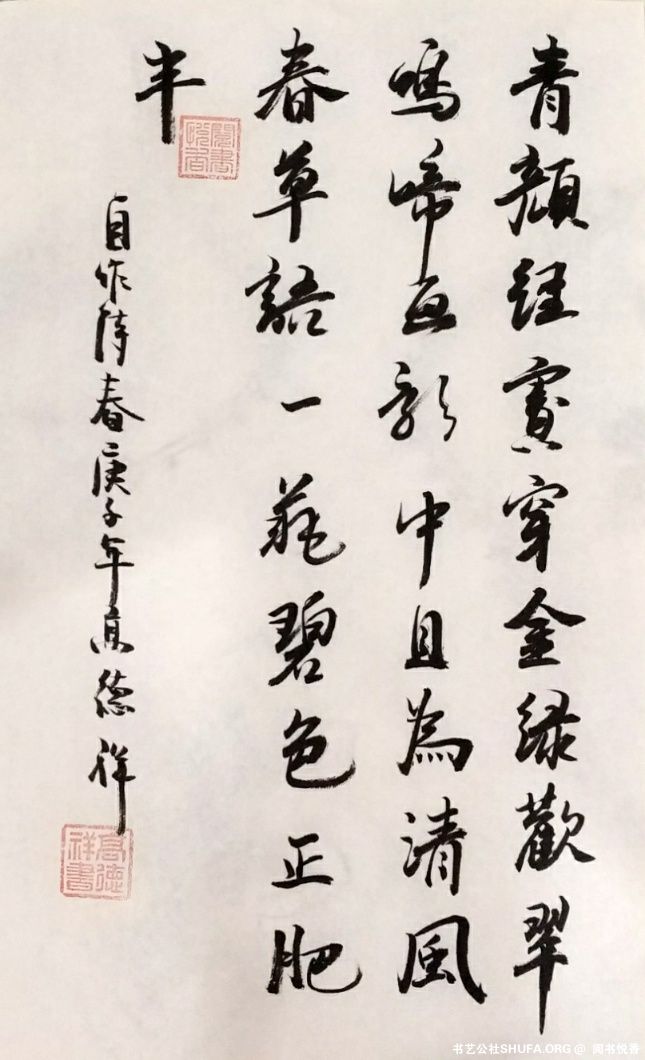 青顏經穿金綠歡翠
鳴啼画影中且為清風
春草語一苑碧色正肥
丰
聞書悅香
自作詩春庚子年高德祥
高德祥書
书艺公社SHUFA.ORG @ 闻书悦香